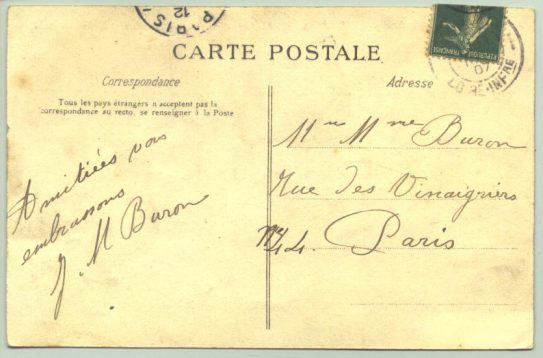 PARIS
12
CARTE POSTALE
REPUBLIQUE FRANÇAISE
07
LOIRE-INFRE
Correspondance
Adresse
Tous les pays étrangers n'acceptent pas la
correspondance au recto, se renseigner à la Poste
Amitiées vous
embrassons
J. M Buron
Mr Mme Buron
Rue des Vinaigriers
No 44. Paris